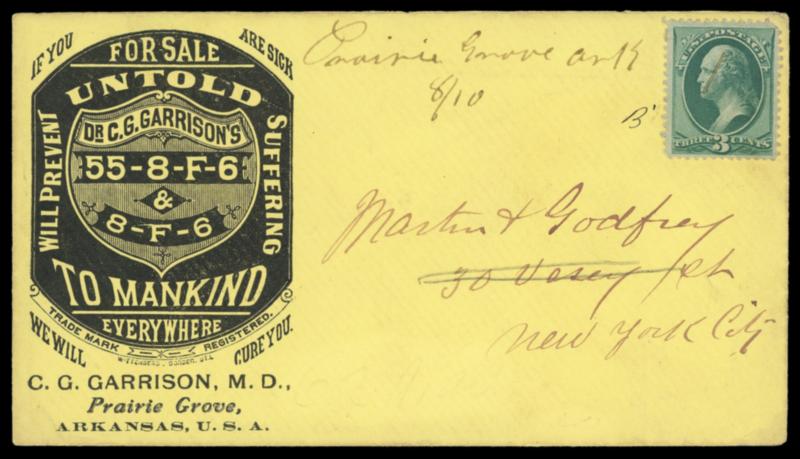 IF YOU ARE SICK
FOR SALE
UNTOLD
DR C.G. GARRISON'S
55-8-F-6
&
8-F-6
WILL PREVENT
SUFFERING
TO MANKIND
EVERYWHERE
TRADE MARK REGISTERED.
WE WILL CURE YOU.
C. G. GARRISON, M. D.,
Prairie Grove,
ARKANSAS, U. S. A.
Prairie Grove Ark
8/10
B
U.S. POSTAGE
THREE 3 CENTS
Martin & Godfrey
30 Vesey St
New York City